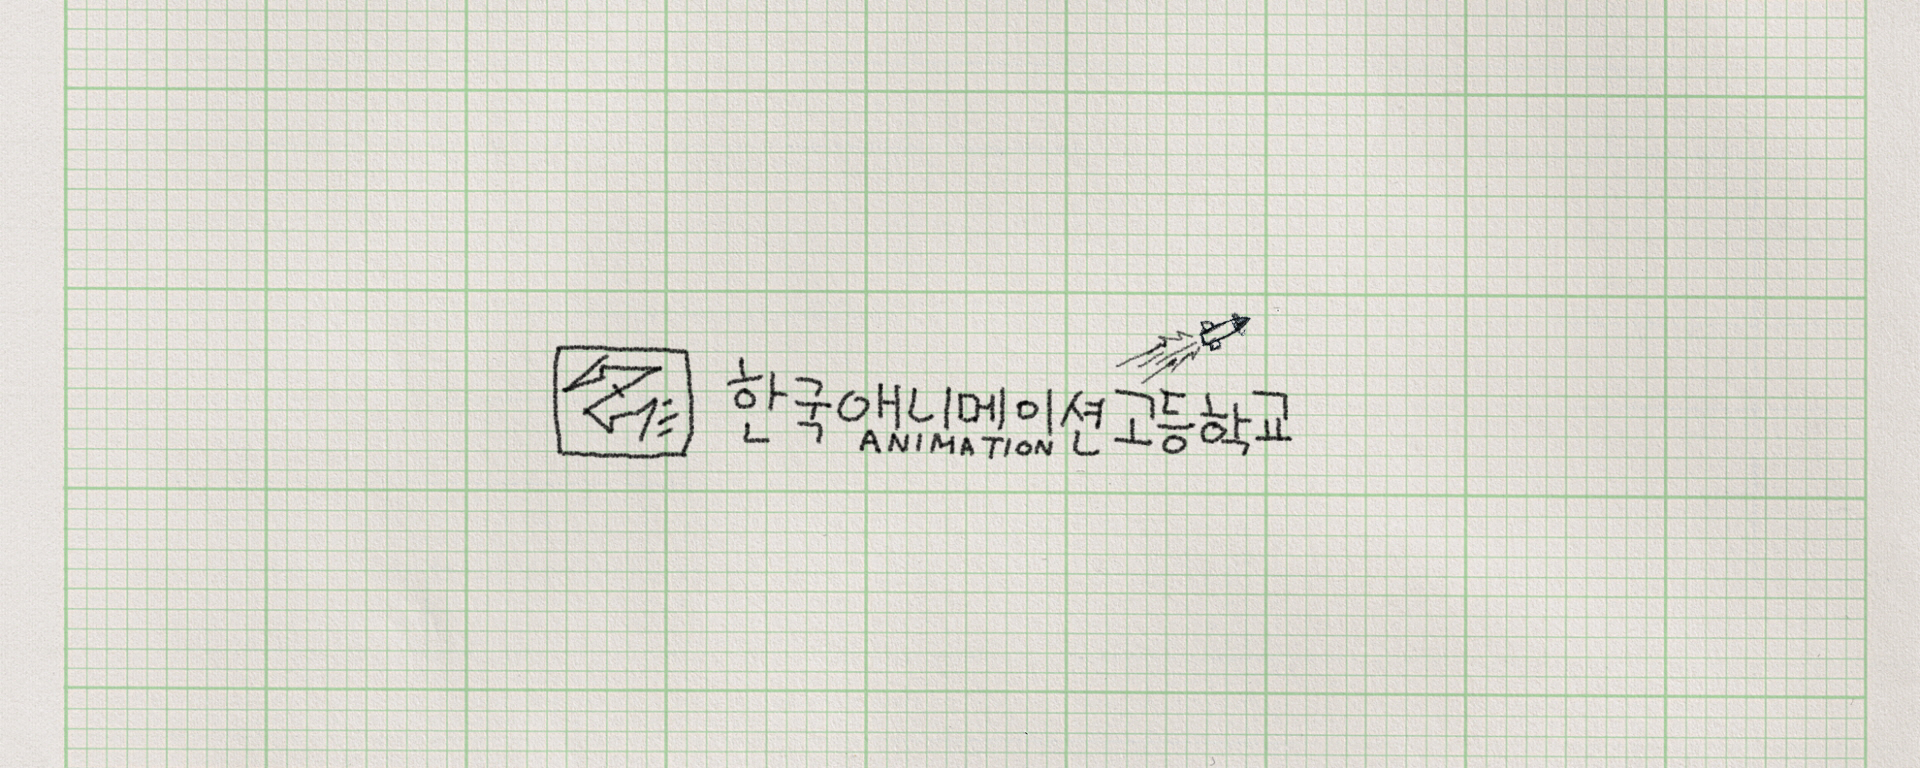 한국애니메이션고등학교
ANIMATION